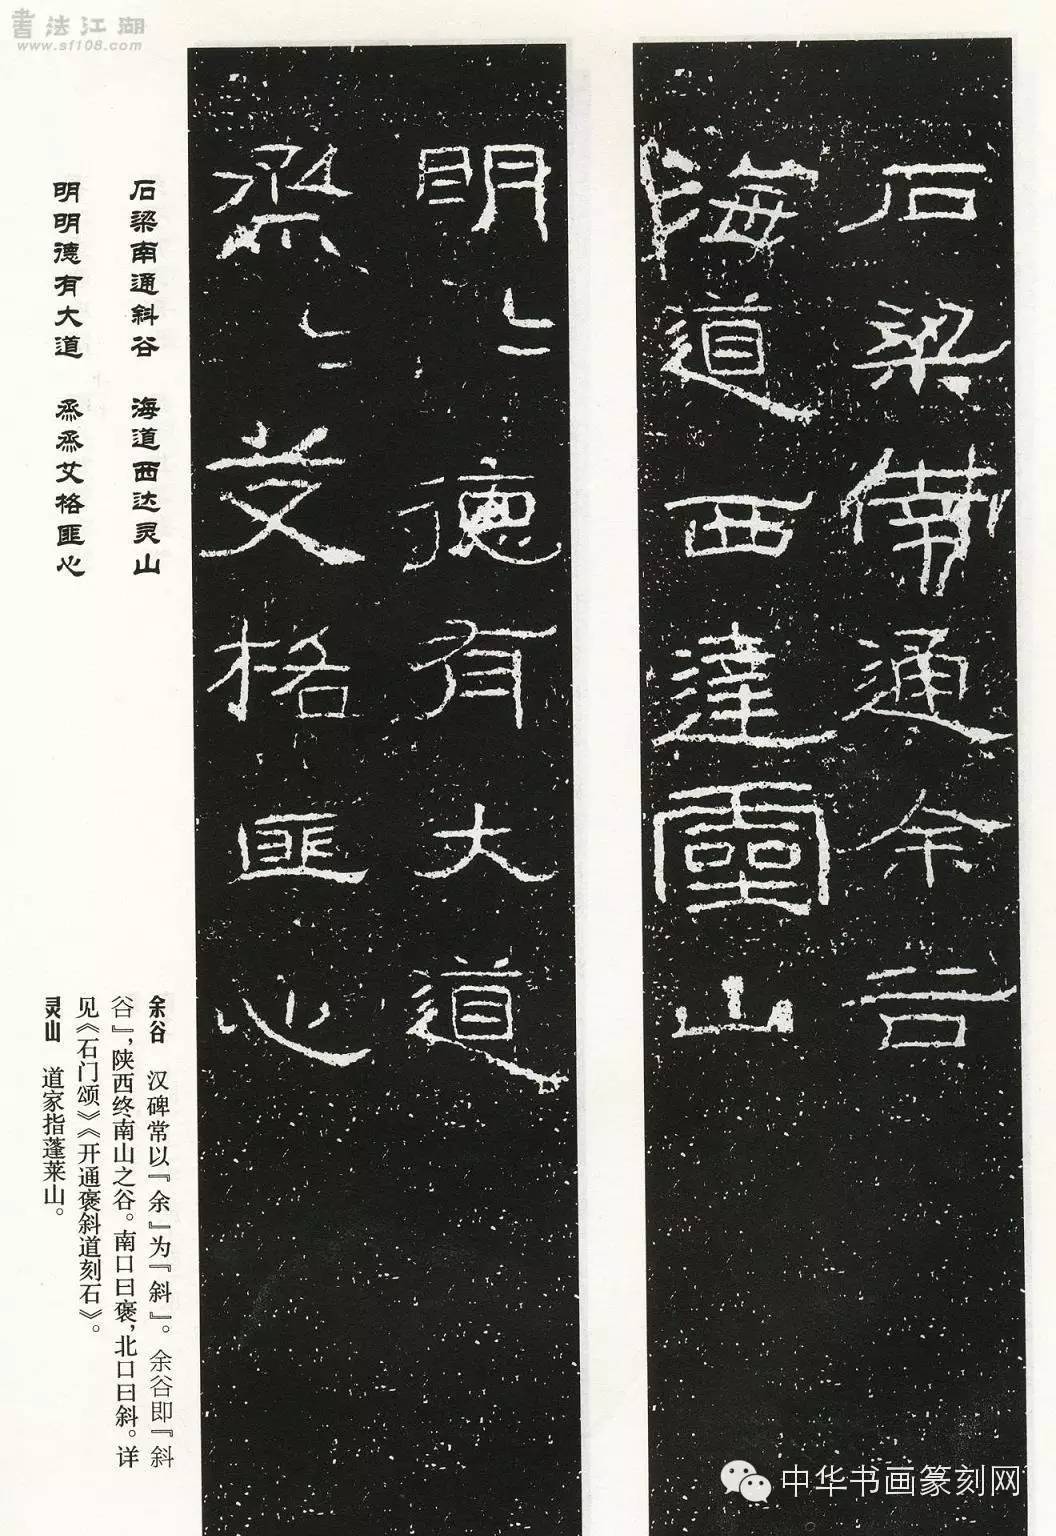 书法江湖
www.sf108.com
石梁南通余谷
海道西達靈山
明〻德有大道
烝〻艾格匪心
石梁南通斜谷　海道西达灵山
明明德有大道　烝烝艾格匪心
余谷　汉碑常以『余』为『斜』。余谷即『斜
谷』，陕西终南山之谷。南口曰褒，北口曰斜。详
见《石门颂》《开通褒斜道刻石》。
灵山　道家指蓬莱山。
中华书画篆刻网